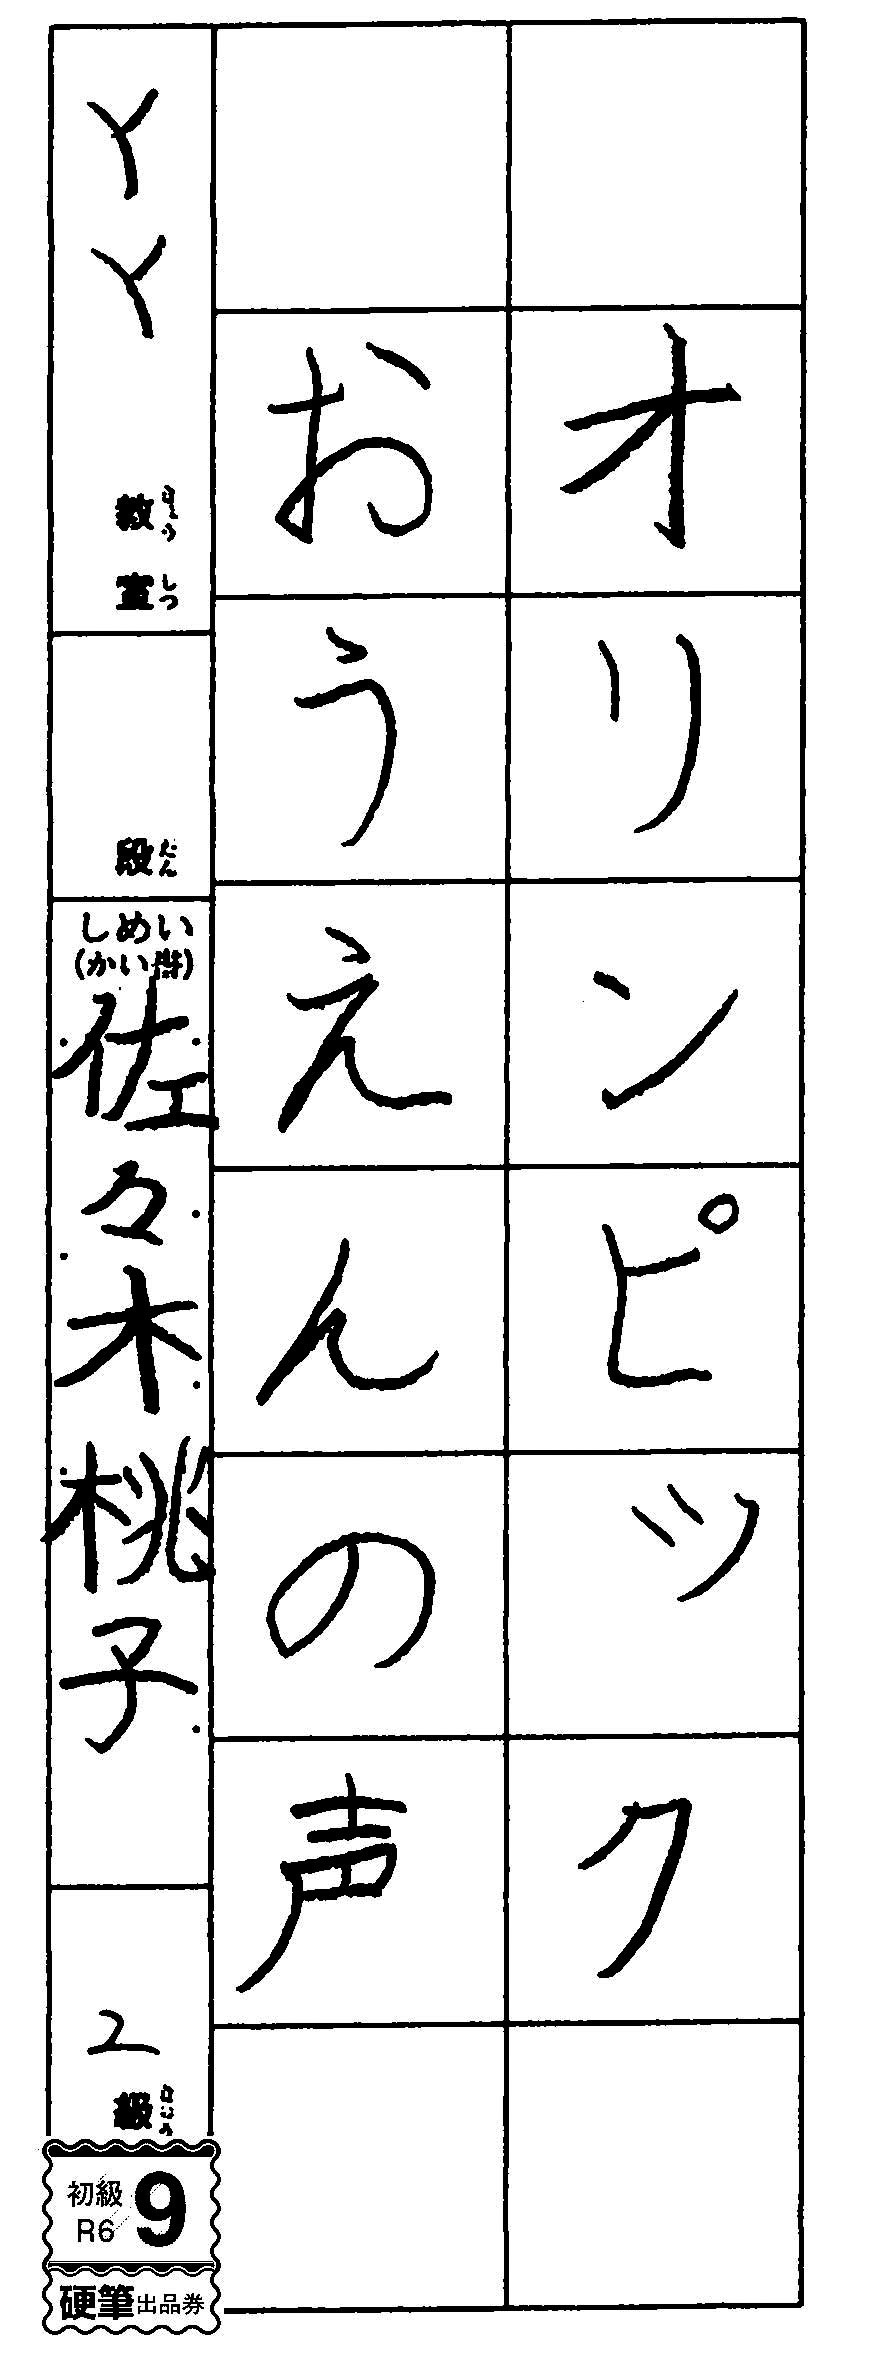 オリンピック
おうえんの声
YY 教室
きょうしつ
段
だん
しめい
(かい書)
佐々木桃子
2 級
初級
R6
9
硬筆出品券